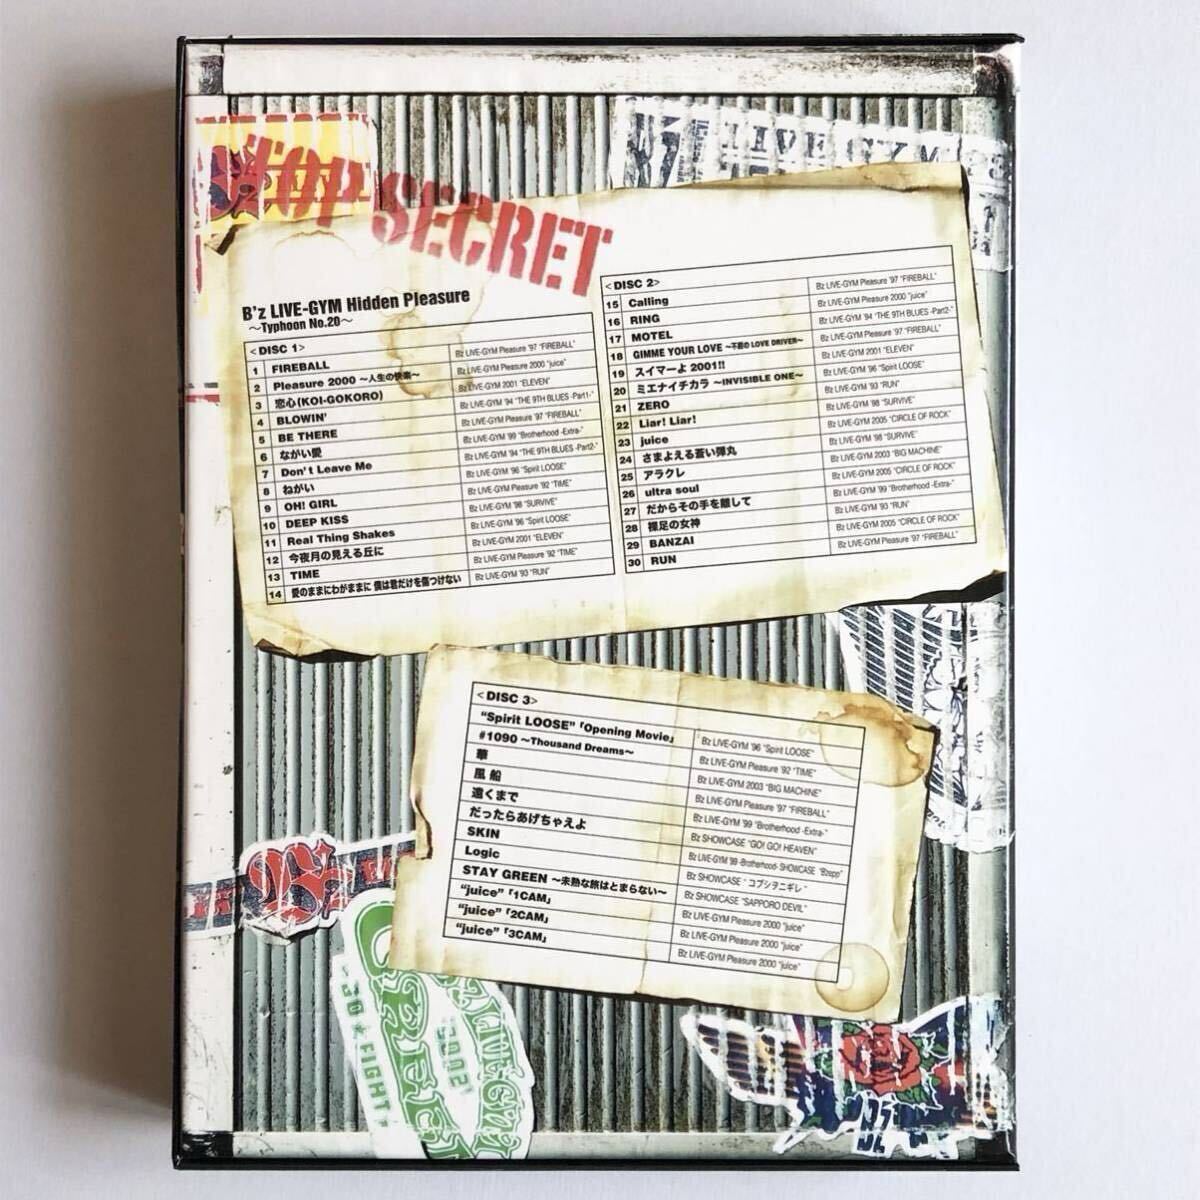 TOP SECRET
B'z LIVE-GYM
B'z LIVE-GYM Hidden Pleasure
〜Typhoon No.20〜
<DISC 1>
1 FIREBALL B'z LIVE-GYM Pleasure '97 "FIREBALL"
2 Pleasure 2000 〜人生の快楽〜 B'z LIVE-GYM Pleasure 2000 "juice"
3 恋心(KOI-GOKORO) B'z LIVE-GYM 2001 "ELEVEN"
4 BLOWIN' B'z LIVE-GYM '94 "THE 9TH BLUES -Part1-"
5 BE THERE B'z LIVE-GYM Pleasure '97 "FIREBALL"
6 ながい愛 B'z LIVE-GYM '99 "Brotherhood -Extra-"
7 Don't Leave Me B'z LIVE-GYM '94 "THE 9TH BLUES -Part2-"
8 ねがい B'z LIVE-GYM '96 "Spirit LOOSE"
9 OH! GIRL B'z LIVE-GYM Pleasure '92 "TIME"
10 DEEP KISS B'z LIVE-GYM '98 "SURVIVE"
11 Real Thing Shakes B'z LIVE-GYM '96 "Spirit LOOSE"
12 今夜月の見える丘に B'z LIVE-GYM 2001 "ELEVEN"
13 TIME B'z LIVE-GYM Pleasure '92 "TIME"
14 愛のままにわがままに 僕は君だけを傷つけない B'z LIVE-GYM '93 "RUN"
<DISC 2>
15 Calling B'z LIVE-GYM Pleasure '97 "FIREBALL"
16 RING B'z LIVE-GYM Pleasure 2000 "juice"
17 MOTEL B'z LIVE-GYM '94 "THE 9TH BLUES -Part2-"
18 GIMME YOUR LOVE 〜不屈のLOVE DRIVER〜 B'z LIVE-GYM Pleasure '97 "FIREBALL"
19 スイマーよ 2001!! B'z LIVE-GYM 2001 "ELEVEN"
20 ミエナイチカラ 〜INVISIBLE ONE〜 B'z LIVE-GYM '96 "Spirit LOOSE"
21 ZERO B'z LIVE-GYM '93 "RUN"
22 Liar! Liar! B'z LIVE-GYM '98 "SURVIVE"
23 juice B'z LIVE-GYM 2005 "CIRCLE OF ROCK"
24 さまよえる蒼い弾丸 B'z LIVE-GYM '98 "SURVIVE"
25 アラクレ B'z LIVE-GYM 2003 "BIG MACHINE"
26 ultra soul B'z LIVE-GYM 2005 "CIRCLE OF ROCK"
27 だからその手を離して B'z LIVE-GYM '99 "Brotherhood -Extra-"
28 裸足の女神 B'z LIVE-GYM '93 "RUN"
29 BANZAI B'z LIVE-GYM 2005 "CIRCLE OF ROCK"
30 RUN B'z LIVE-GYM Pleasure '97 "FIREBALL"
<DISC 3>
"Spirit LOOSE"「Opening Movie」 B'z LIVE-GYM '96 "Spirit LOOSE"
#1090 〜Thousand Dreams〜 B'z LIVE-GYM Pleasure '92 "TIME"
華 B'z LIVE-GYM 2003 "BIG MACHINE"
風船 B'z LIVE-GYM Pleasure '97 "FIREBALL"
遠くまで B'z LIVE-GYM '99 "Brotherhood -Extra-"
だったらあげちゃえよ B'z SHOWCASE "GO! GO! HEAVEN"
SKIN B'z LIVE-GYM '99 -Brotherhood- SHOWCASE "Bzepp"
Logic B'z SHOWCASE "コブシヲニギレ"
STAY GREEN 〜未熟な旅はとまらない〜 B'z SHOWCASE "SAPPORO DEVIL"
"juice"「1CAM」 B'z LIVE-GYM Pleasure 2000 "juice"
"juice"「2CAM」 B'z LIVE-GYM Pleasure 2000 "juice"
"juice"「3CAM」 B'z LIVE-GYM Pleasure 2000 "juice"
GREEN
2002
GO★FIGHT
B'z